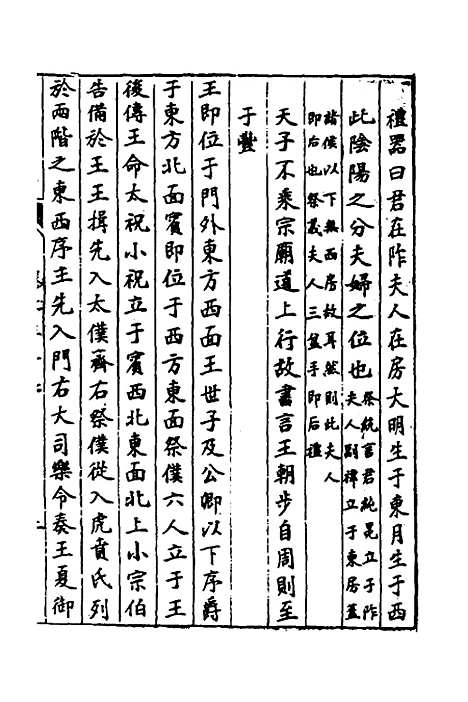 禮器曰君在阼夫人在房大明生于東月生于西
此陰陽之分夫婦之位也祭統言君純冕立于阼
夫人副褘立于東房蓋
諸侯以下無西房故耳然則此夫人
即后也祭義夫人三盆手即后禮
天子不乘宗廟道上行故書言王朝步自周則至
于豐
王即位于門外東方西面王世子及公卿以下序爵
于東方北面賓即位于西方東面祭僕六人立于王
後傳王命太祝小祝立于賓西北東面北上小宗伯
告備於王王揖先入太僕齊右祭僕從入虎賁氏列
於兩階之東西序主先入門右大司樂令奏王夏御